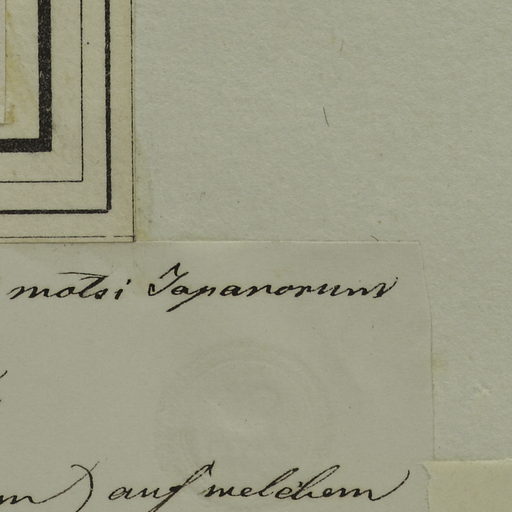 motsi Japanorum
m) auf welchem